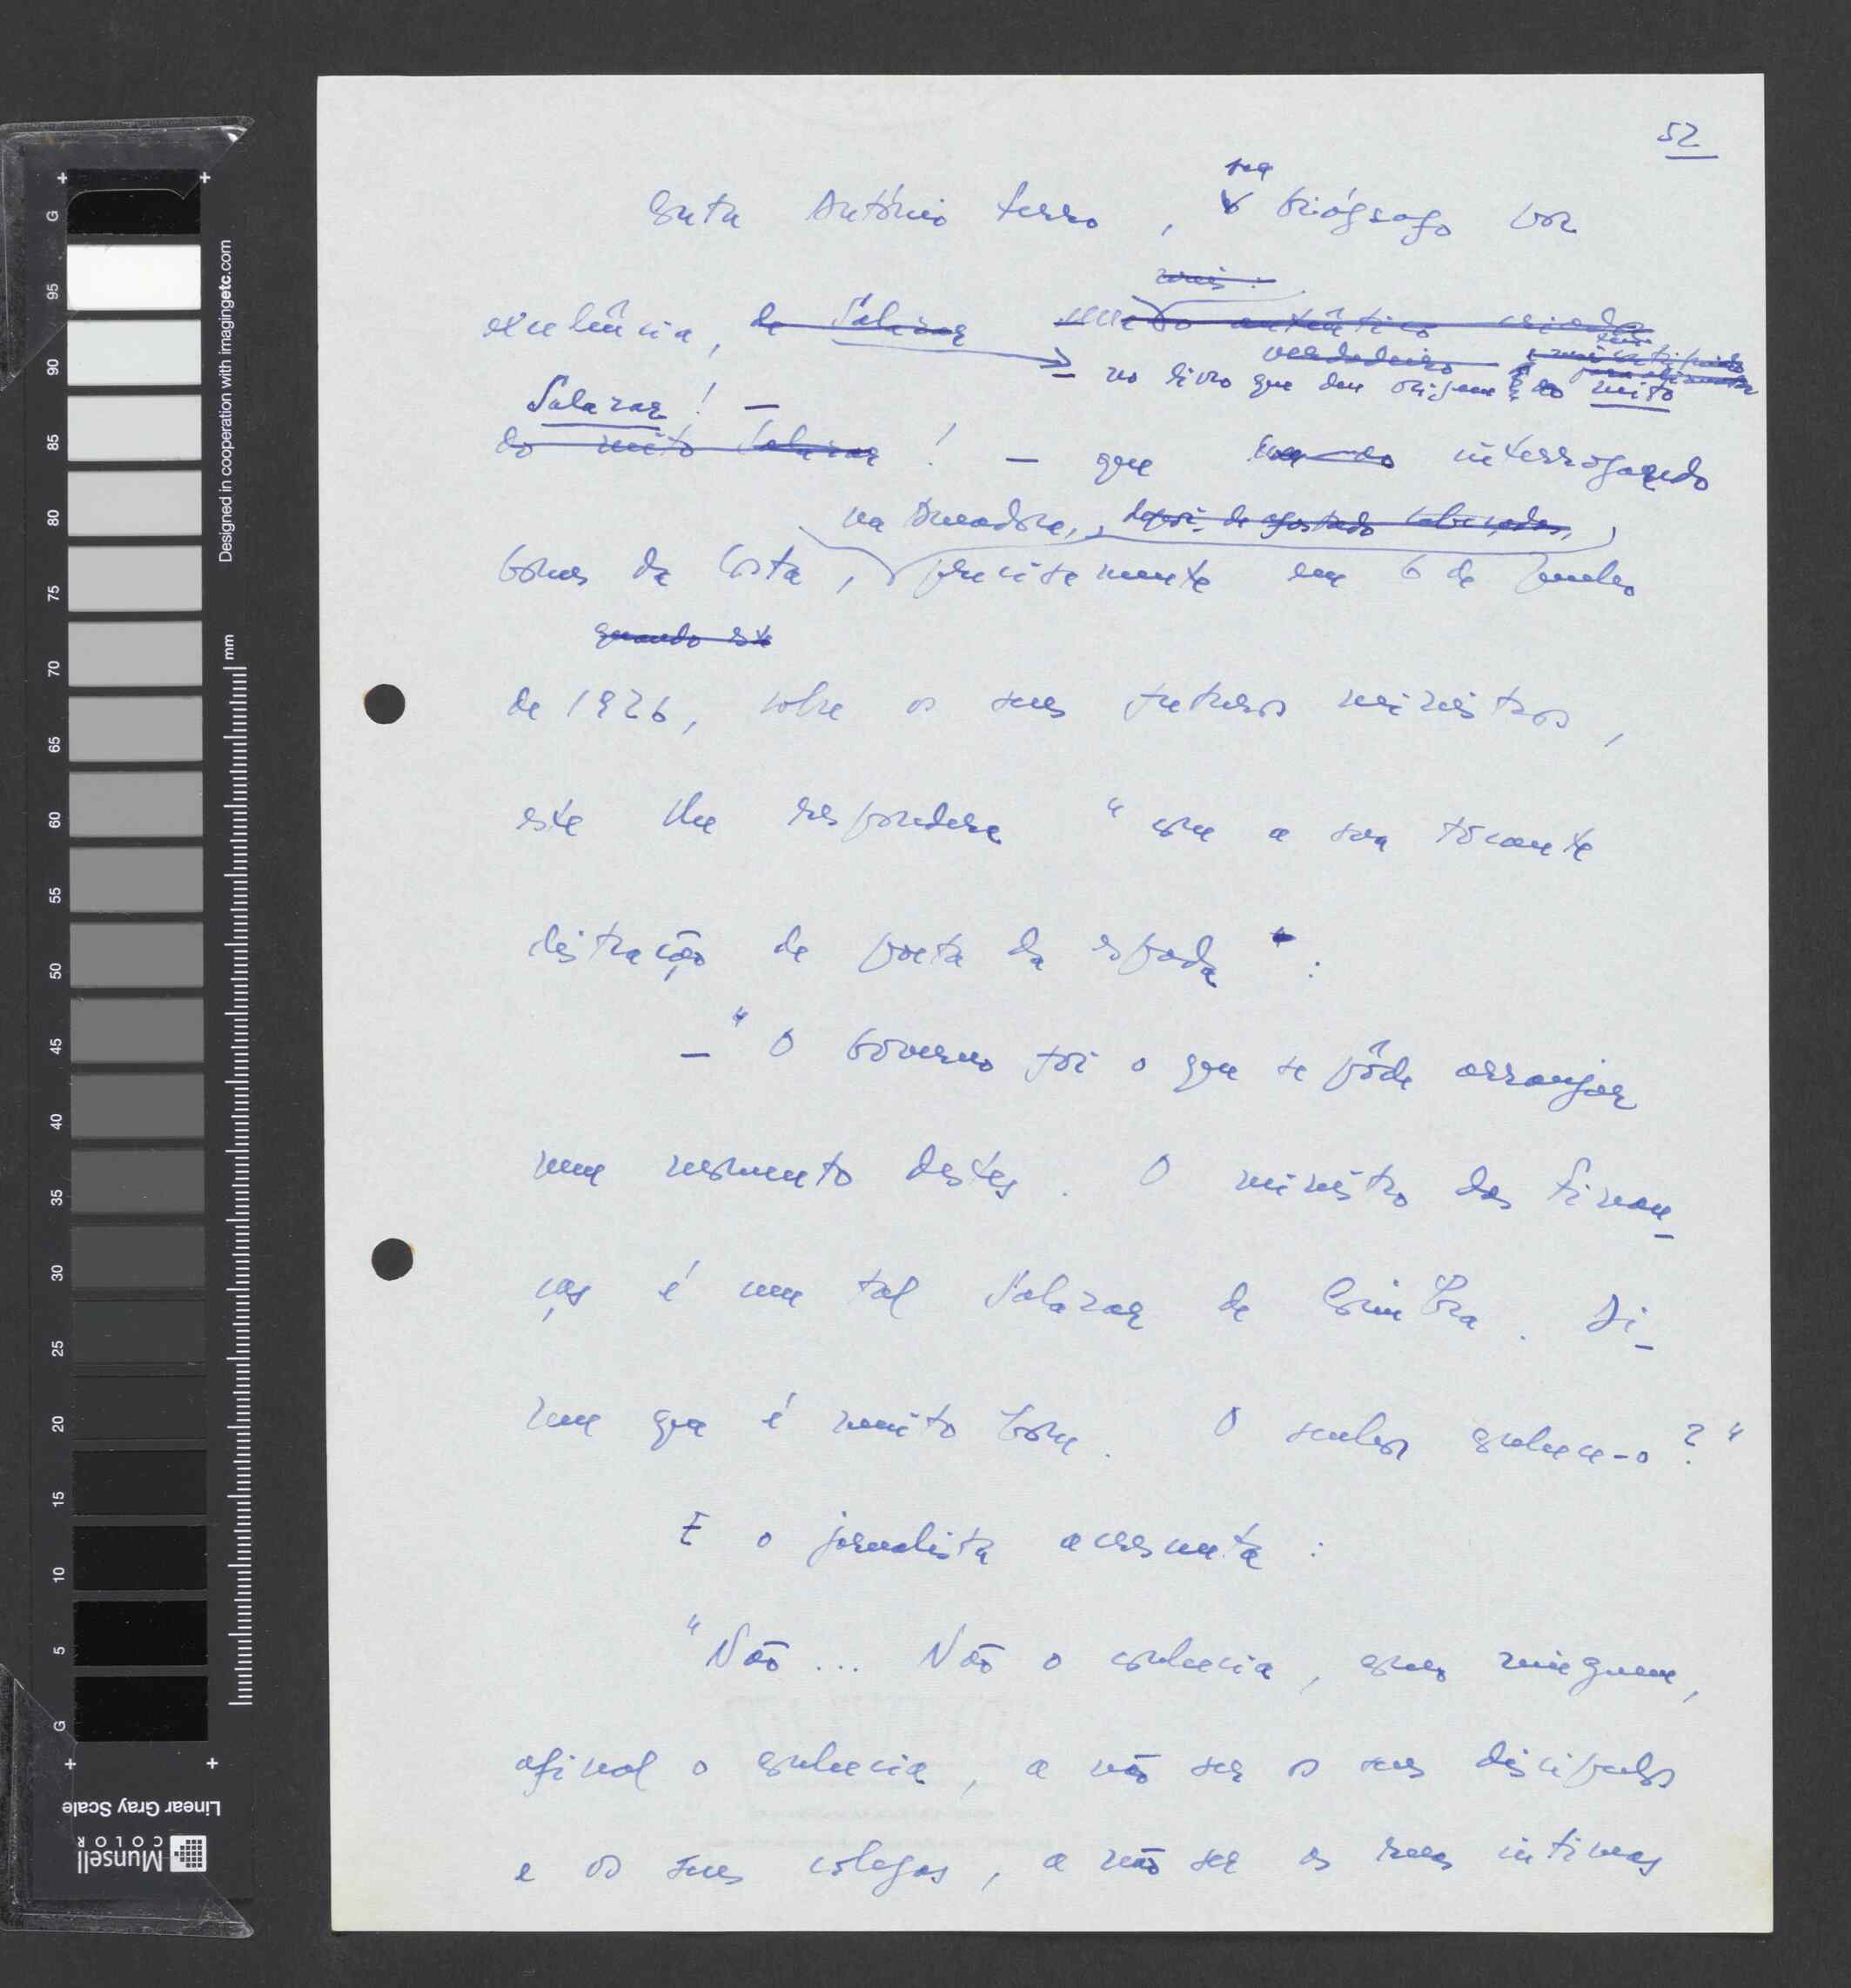 52
Conta António Ferro, seu biógrafo por
excelência, de Salazar
mais
autêntico criador
verdadeiro
– no livro que deu origem ao mito
Salazar! –
do mito Salazar! – que interrogando
na Amadora, depois de afastado Cabeçadas,
Gomes da Costa, precisamente em 6 de Junho
quando este
de 1926, sobre os seus futuros ministros,
este lhe respondera "com a sua tocante
distracção de poeta da espada":
– "O Governo foi o que se pôde arranjar
num momento destes. O ministro das Finan-
ças é um tal Salazar de Coimbra. Di-
zem que é muito bom. O senhor conhece-o?"
E o jornalista acrescenta:
"Não... Não o conhecia, como ninguem,
afinal o conhecia, a não ser os seus discipulos
e os seus colegas, a não ser os seus intimos
Designed in cooperation with imagingetc.com
mm
G 95 90 80 75 70 65 60 55 50 45 40 35 30 25 20 15 10 5 G
Linear Gray Scale
Munsell
COLOR